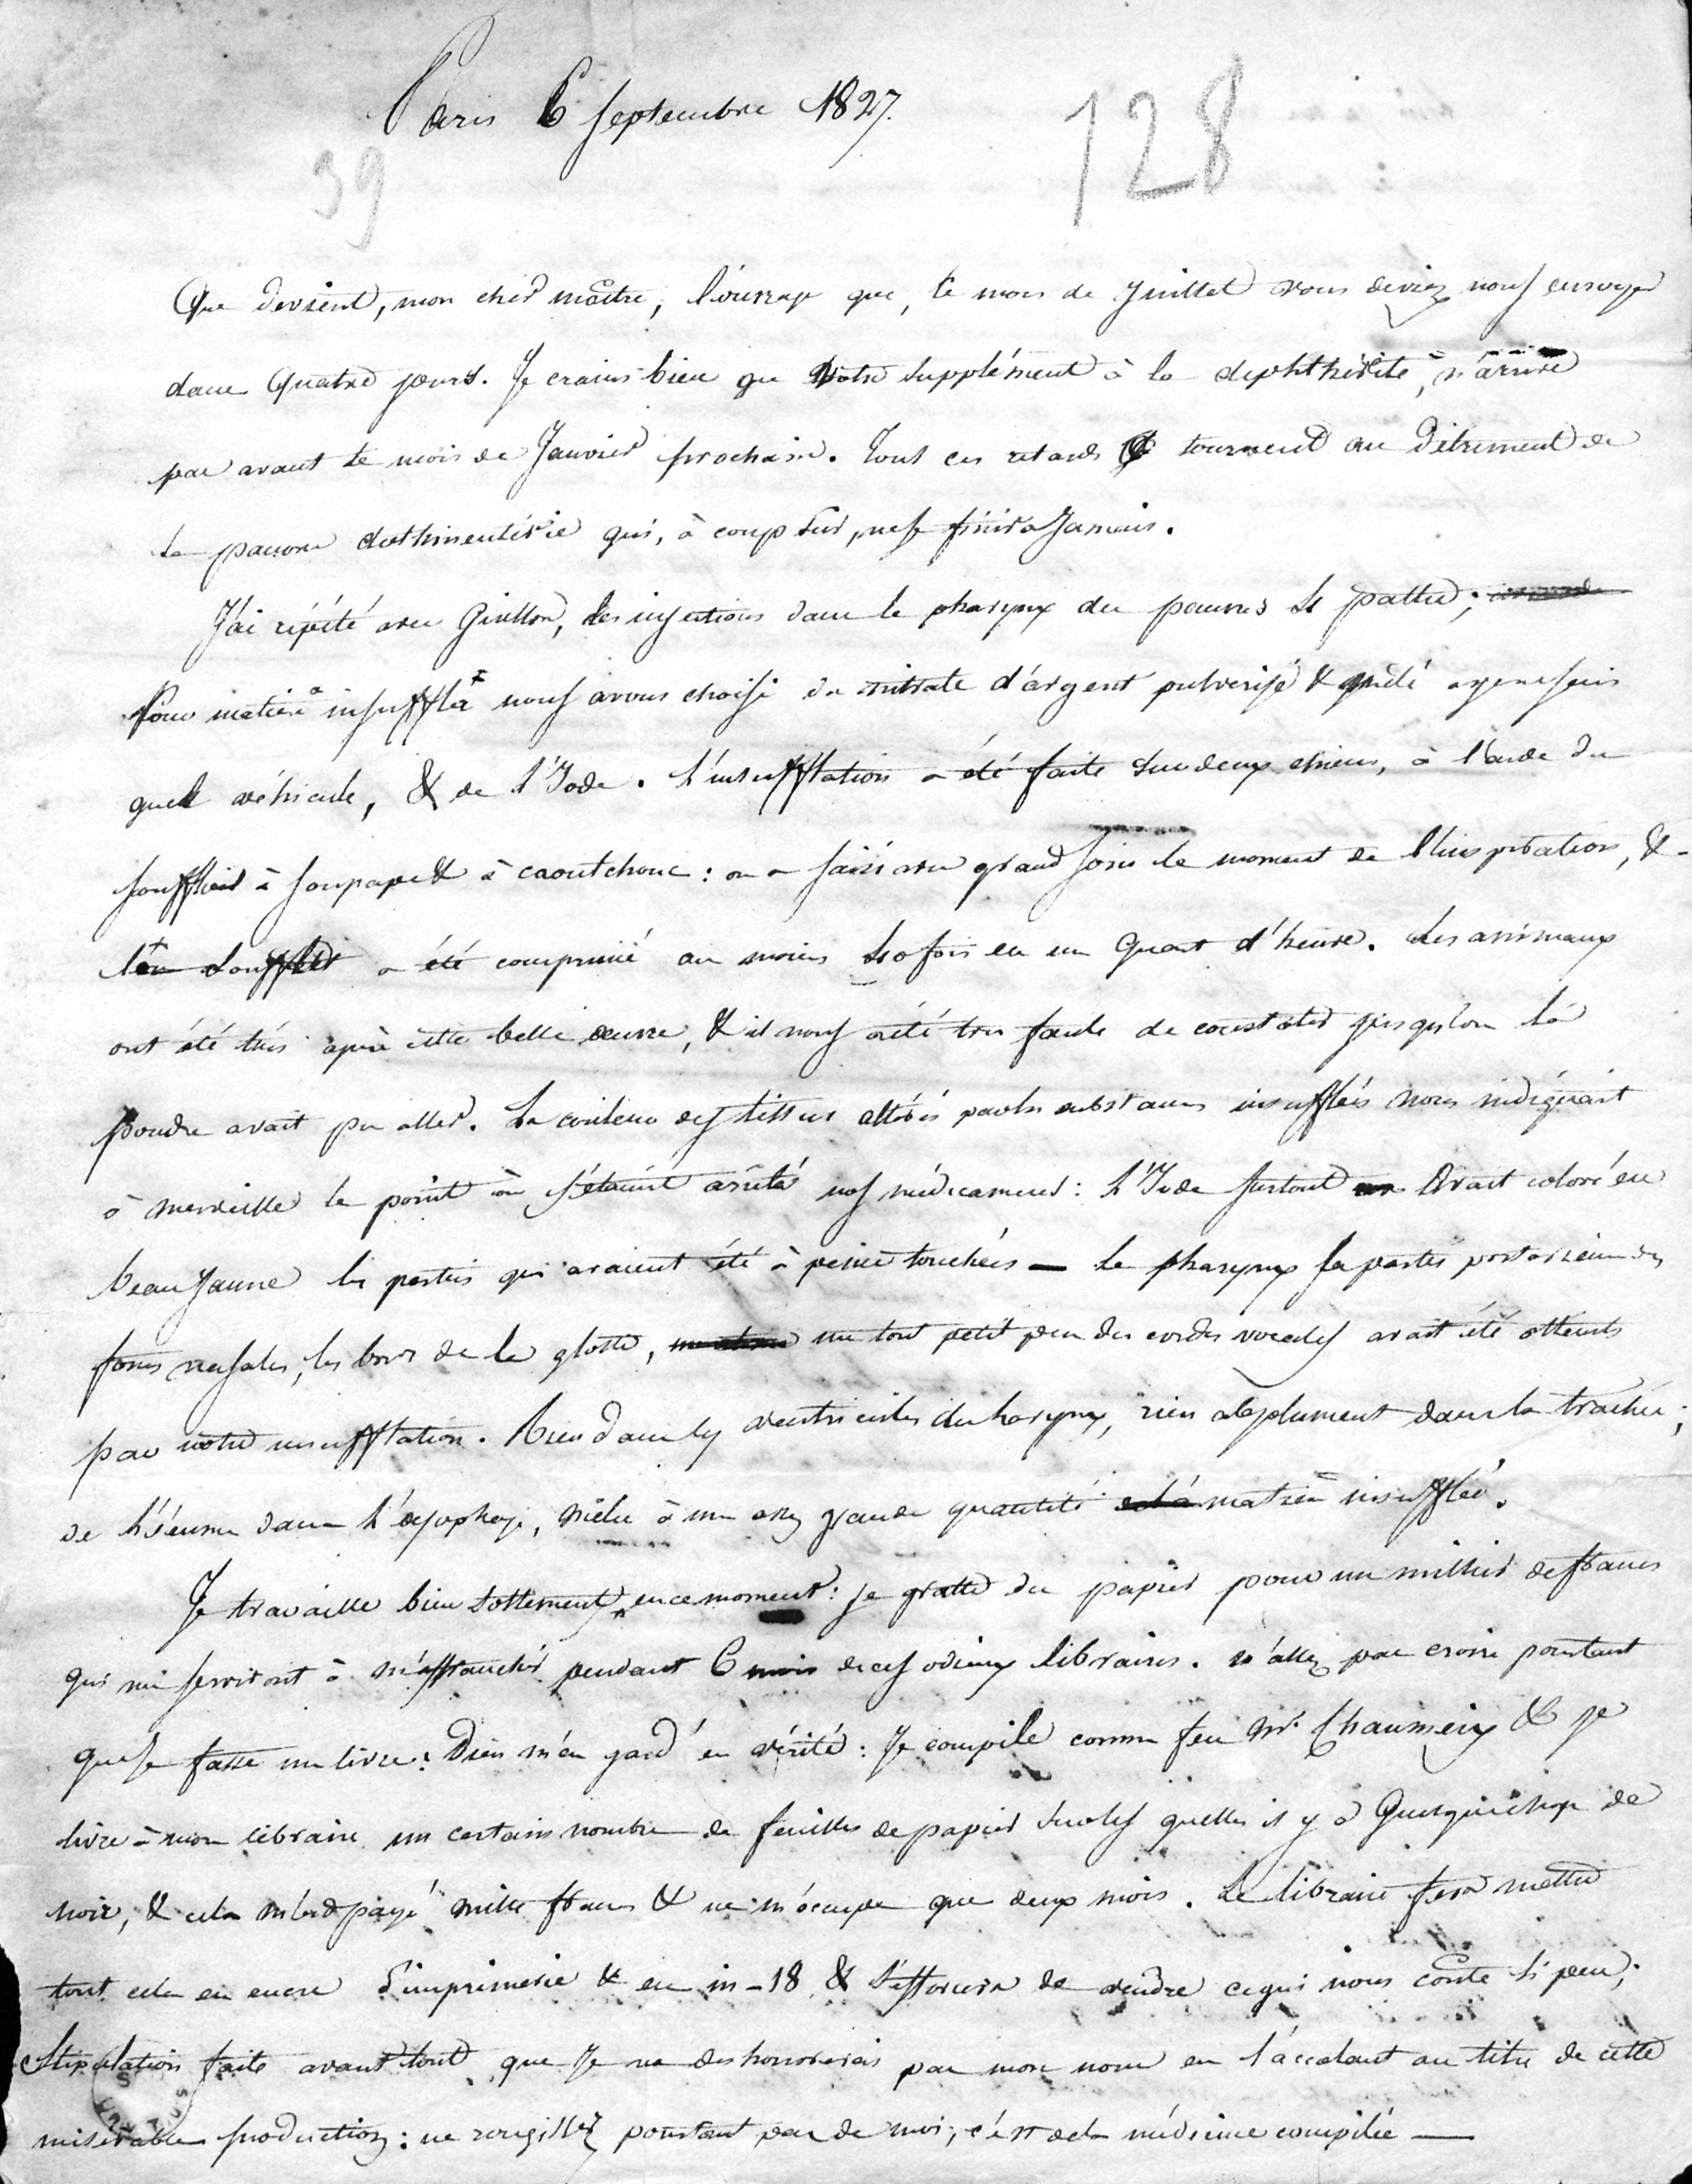 Paris 6 Septembre 1827.
128
39
Que devient, mon cher maître, l'ouvrage que, le mois de juillet vous deviez nous envoyer
dans Quatre jours. Je crains bien que Votre supplément à la diphthérite, n'arrive
pas avant le mois de Janvier prochain. Tous ces retards tournent au Détriment de
la pauvre dothinentérie qui, à coup sur, ne se finira Jamais.
J'ai répété avec Guillon, les injections dans le pharynx des pauvres
Pour matière à insuffler nous avons choisi du nitrate d'argent pulvérisé &
véhicule, & de l'Iode. L'insufflation a été faite sur deux chiens, à l'aide du
soufflet à soupape & à caoutchouc : on a saisi avec grand soin le moment de l'inspiration, &
le soufflet a été comprimé au moins fois en un Quart d'heure. Les animaux
ont été tués après cette belle œuvre, & il nous a été très facile de constater jusqu'où la
poudre avait pu aller. La couleur des tissus altérés par les substances insufflées nous indiquait
à merveille le point où s'étaient arrêtés nos médicamens : L'Iode surtout avait coloré en
beau Jaune les parties qui avaient été à peine touchées — Le pharynx la partie postérieure des
fosses nasales, les bords de la glotte, un tout petit peu des cordes vocales avait été atteints
par notre insufflation. Rien dans les ventricules du larynx, rien absolument dans la trachée ;
de l'écume dans l'œsophage, mêlée à une assez grande quantité matière insufflée.
Je travaille bien sottement, en ce moment : je gratte du papier pour un millier de francs
qui me serviront à m'affranchir pendant 6 mois de ces odieux libraires. n'allez pas croire pourtant
que je fasse un livre : Dieu m'en gard' en vérité : Je compile comme feu Mr Chaumeix & je
livre à mon libraire un certain nombre de feuilles de papier sur les quelles il y a Quelque chose de
noir, & cela m'est payé mille francs & ne m'occupe que deux mois. Le libraire fera mettre
tout cela en encre d'imprimerie & en in-18 & s'efforcera de vendre ce qui nous coûte si peu ;
Stipulation faite avant tout que Je ne deshonorerais pas mon nom en l'accolant au titre de cette
misérable production : ne rougissez pourtant pas de moi, c'est de la médecine compilée —